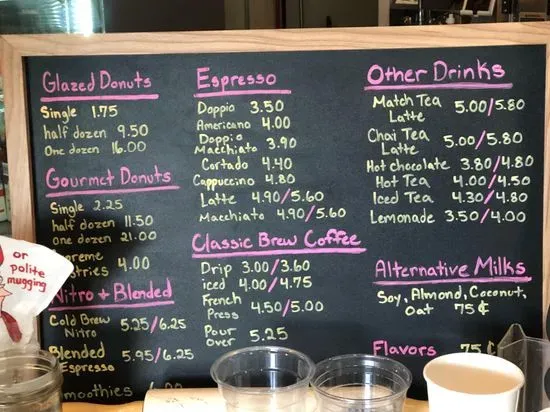 Glazed Donuts
Single 1.75
half dozen 9.50
One dozen 16.00
Gourmet Donuts
Single 2.25
half dozen 11.50
one dozen 21.00
4.00
Nitro + Blended
Cold Brew 5.25/6.25
Nitro
Blended 5.95/6.25
Espresso
6.00
or
polite
mugging
Espresso
Doppio 3.50
Americano 4.00
Doppio
Macchiato 3.90
Cortado 4.40
Cappuccino 4.80
Latte 4.90/5.60
Macchiato 4.90/5.60
Classic Brew Coffee
Drip 3.00/3.60
iced 4.00/4.75
French
Press 4.50/5.00
Pour
Over 5.25
Other Drinks
Match Tea 5.00/5.80
Latte
Chai Tea
Latte 5.00/5.80
Hot chocolate 3.80/4.80
Hot Tea 4.00/4.50
Iced Tea 4.30/4.80
Lemonade 3.50/4.00
Alternative Milks
Soy, Almond, Coconut,
Oat 75¢
Flavors 75¢